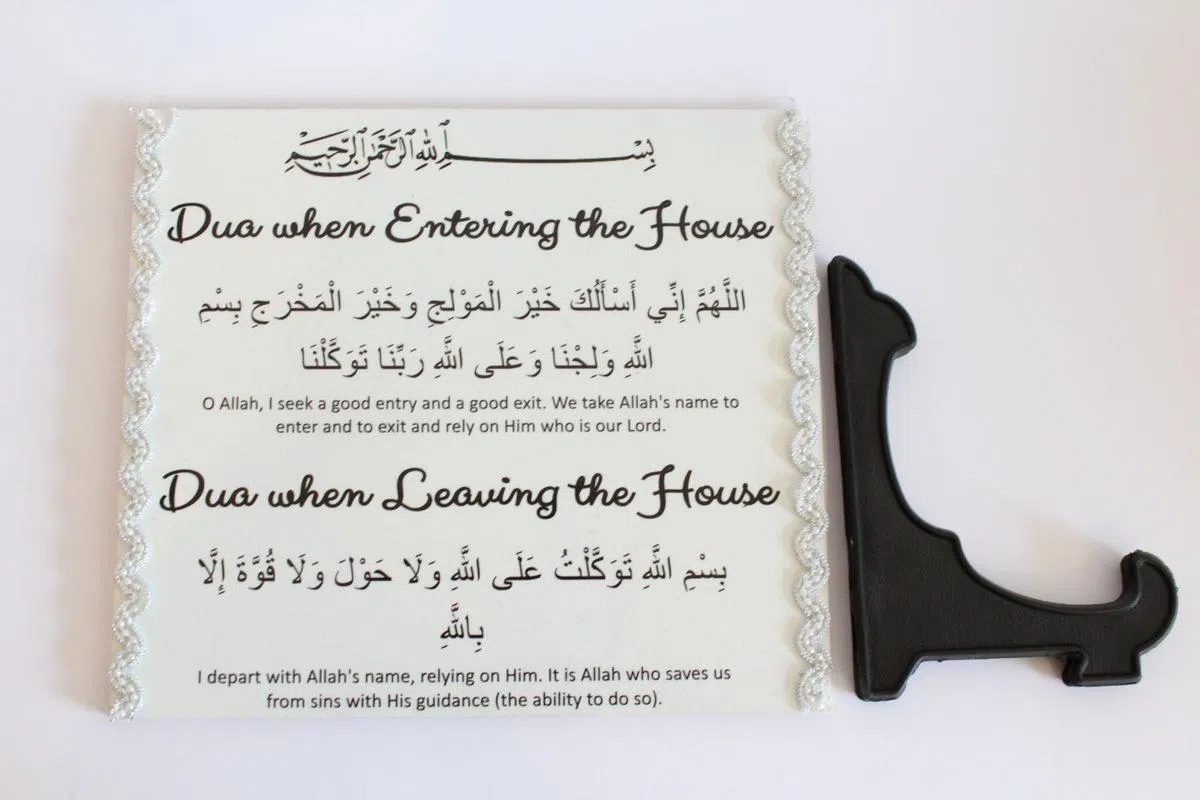 بِسْمِ ٱللَّهِ ٱلرَّحْمَٰنِ ٱلرَّحِيمِ
Dua when Entering the House
اللَّهُمَّ إِنِّي أَسْأَلُكَ خَيْرَ الْمَوْلِجِ وَخَيْرَ الْمَخْرَجِ بِسْمِ
اللَّهِ وَلِجْنَا وَعَلَى اللَّهِ رَبِّنَا تَوَكَّلْنَا
O Allah, I seek a good entry and a good exit. We take Allah's name to
enter and to exit and rely on Him who is our Lord.
Dua when Leaving the House
بِسْمِ اللَّهِ تَوَكَّلْتُ عَلَى اللَّهِ وَلَا حَوْلَ وَلَا قُوَّةَ إِلَّا
بِاللَّهِ
I depart with Allah's name, relying on Him. It is Allah who saves us
from sins with His guidance (the ability to do so).